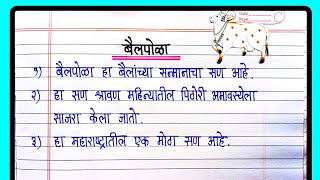 बैलपोळा
१) बैलपोळा हा बैलांच्या सन्मानाचा सण आहे.
२) हा सण श्रावण महिन्यातील पिठोरी अमावस्येला
साजरा केला जातो.
३) हा महाराष्ट्रातील एक मोठा सण आहे.